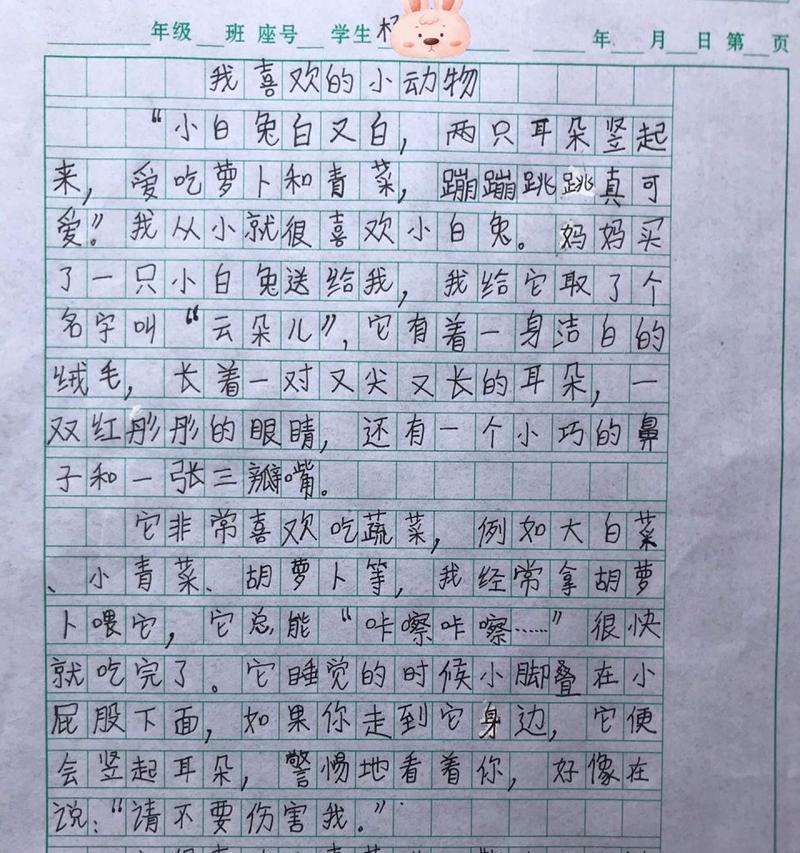 年级 班 座号 学生 年 月 日 第 页
我喜欢的小动物
“小白兔白又白，两只耳朵竖起
来，爱吃萝卜和青菜，蹦蹦跳跳真可
爱”。我从小就很喜欢小白兔。妈妈买
了一只小白兔送给我，我给它取了个
名字叫“云朵儿”，它有着一身洁白的
绒毛，长着一对又尖又长的耳朵，一
双红彤彤的眼睛，还有一个小巧的鼻
子和一张三瓣嘴。
它非常喜欢吃蔬菜，例如大白菜
、小青菜、胡萝卜等，我经常拿胡萝
卜喂它，它总能“咔嚓咔嚓……”很快
就吃完了。它睡觉的时候小脚叠在小
屁股下面，如果你走到它身边，它便
会竖起耳朵，警惕地看着你，好像在
说：“请不要伤害我。”